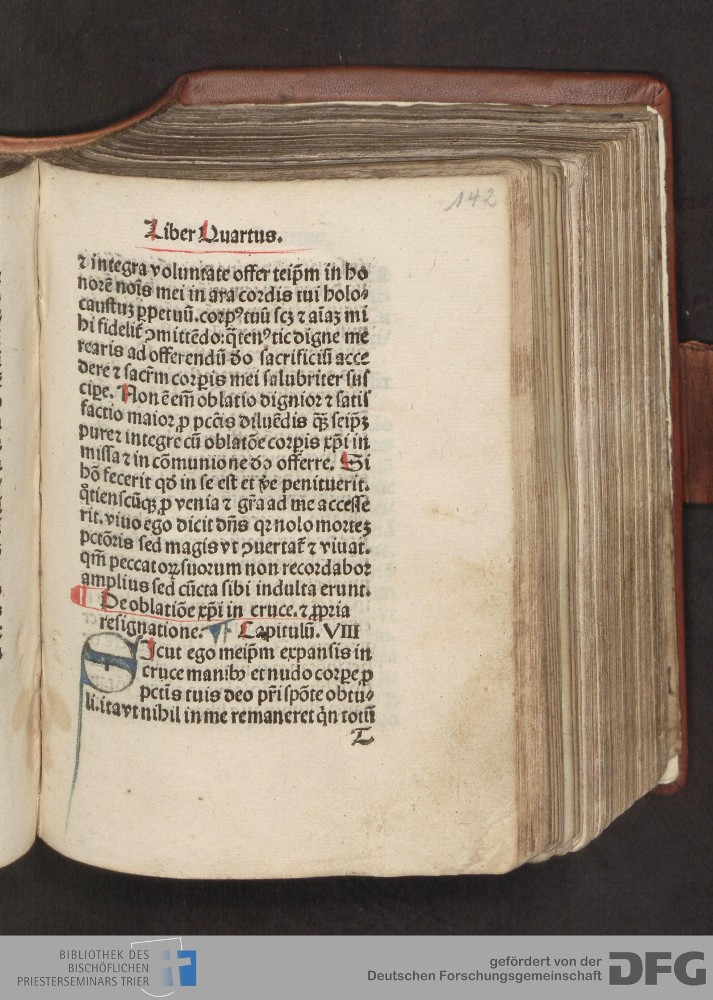 142
Liber Quartus.
⁊ integra voluntate offer teip̄m in ho
norē nois̄ mei in ara cordis tui holo⸗
caustuꝫ ꝑpetuū. corpꝰ tuū scꝫ ⁊ aīaꝫ mi
hi fidelit̄ ꝯmittēdo: q̄tenꝰ tic digne me
rearis ad offerendū do sacrificiū acce
dere ⁊ sacr̄m corꝑis mei salubriter sus
cipe. Non ē em̄ oblatio dignior ⁊ satis
factio maior ꝓ pctīs diluēdis q̄ꝫ seip̄ꝫ
pure ⁊ integre cū oblatōe corꝑis xp̄i in
missa ⁊ in cōmunione do offerre. Si
hō fecerit qd̄ in se est et v̄e penituerit.
q̄tienscūqꝫ ꝓ venia ⁊ grā ad me accesse
rit. viuo ego dicit dn̄s qꝛ nolo morteꝫ
pctōris sed magis vt ꝯuertat̄ ⁊ viuat.
qm̄ peccatoꝝ suorum non recordabor
amplius sed cūcta sibi indulta erunt.
De oblatiōe xp̄i in cruce. ⁊ ꝓpria
resignatione. Capitulū. VIII
SIcut ego meip̄m expansis in
cruce manibꝰ et nudo corꝑe ꝓ
pctīs tuis deo pr̄i spōte obtu⸗
li. ita vt nihil in me remaneret q̄n totū
T
BIBLIOTHEK DES
BISCHÖFLICHEN
PRIESTERSEMINARS TRIER
gefördert von der
Deutschen Forschungsgemeinschaft
DFG